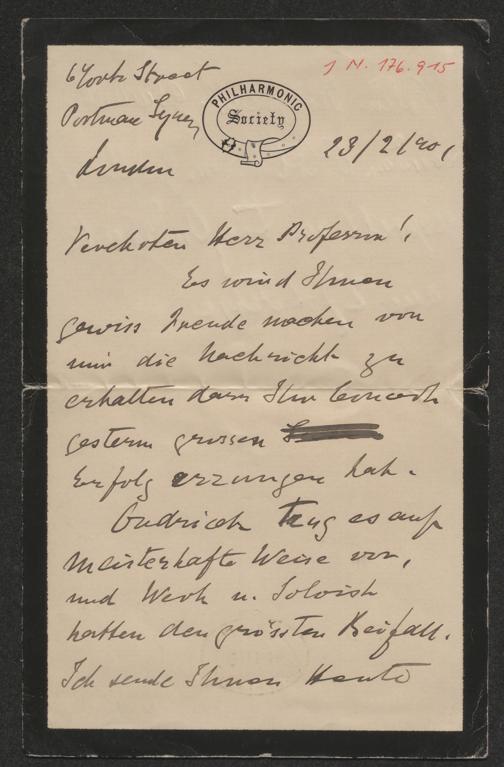 6 York Street
1 N. 176.915
Portman Square
PHILHARMONIC
Society
London
23/2/1901
Verehrten Herr Professor!
Es wird Ihnen
gewiss Freude machen von
mir die Nachricht zu
erhalten dass Ihr Concert
gestern grossen
Erfolg errungen hat.
Ondricek trug es auf
meisterhafte Weise vor,
und Werk u. Solorist
hatten den grössten Beifall.
Ich sende Ihnen Heute